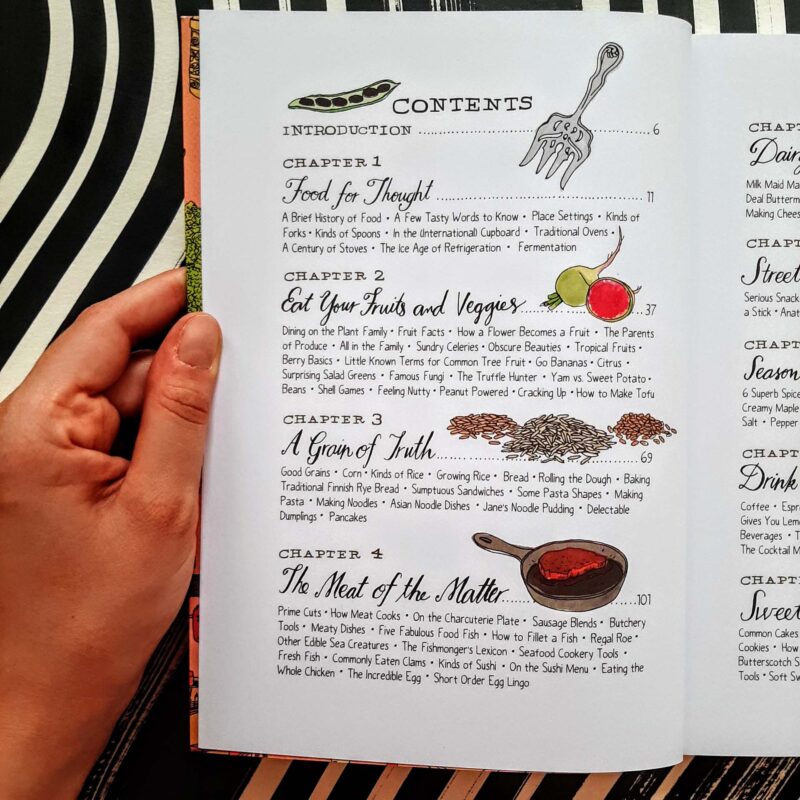 CONTENTS
INTRODUCTION 6
CHAPTER 1
Food for Thought 11
A Brief History of Food • A Few Tasty Words to Know • Place Settings • Kinds of
Forks • Kinds of Spoons • In the (International) Cupboard • Traditional Ovens •
A Century of Stoves • The Ice Age of Refrigeration • Fermentation
CHAPTER 2
Eat Your Fruits and Veggies 37
Dining on the Plant Family • Fruit Facts • How a Flower Becomes a Fruit • The Parents
of Produce • All in the Family • Sundry Celeries • Obscure Beauties • Tropical Fruits •
Berry Basics • Little Known Terms for Common Tree Fruit • Go Bananas • Citrus •
Surprising Salad Greens • Famous Fungi • The Truffle Hunter • Yam vs. Sweet Potato •
Beans • Shell Games • Feeling Nutty • Peanut Powered • Cracking Up • How to Make Tofu
CHAPTER 3
A Grain of Truth 69
Good Grains • Corn • Kinds of Rice • Growing Rice • Bread • Rolling the Dough • Baking
Traditional Finnish Rye Bread • Sumptuous Sandwiches • Some Pasta Shapes • Making
Pasta • Making Noodles • Asian Noodle Dishes • Jane's Noodle Pudding • Delectable
Dumplings • Pancakes
CHAPTER 4
The Meat of the Matter 101
Prime Cuts • How Meat Cooks • On the Charcuterie Plate • Sausage Blends • Butchery
Tools • Meaty Dishes • Five Fabulous Food Fish • How to Fillet a Fish • Regal Roe •
Other Edible Sea Creatures • The Fishmonger's Lexicon • Seafood Cookery Tools •
Fresh Fish • Commonly Eaten Clams • Kinds of Sushi • On the Sushi Menu • Eating the
Whole Chicken • The Incredible Egg • Short Order Egg Lingo
Milk Maid
Deal
Making
Street
Serious Snack
a Stick •
Season
6 Superb
Creamy Maple
Salt • Pepper
Drink
Coffee •
Gives You
Beverages •
The Cocktail
Sweet
Common Cakes
Cookies • How
Butterscotch
Tools • Soft